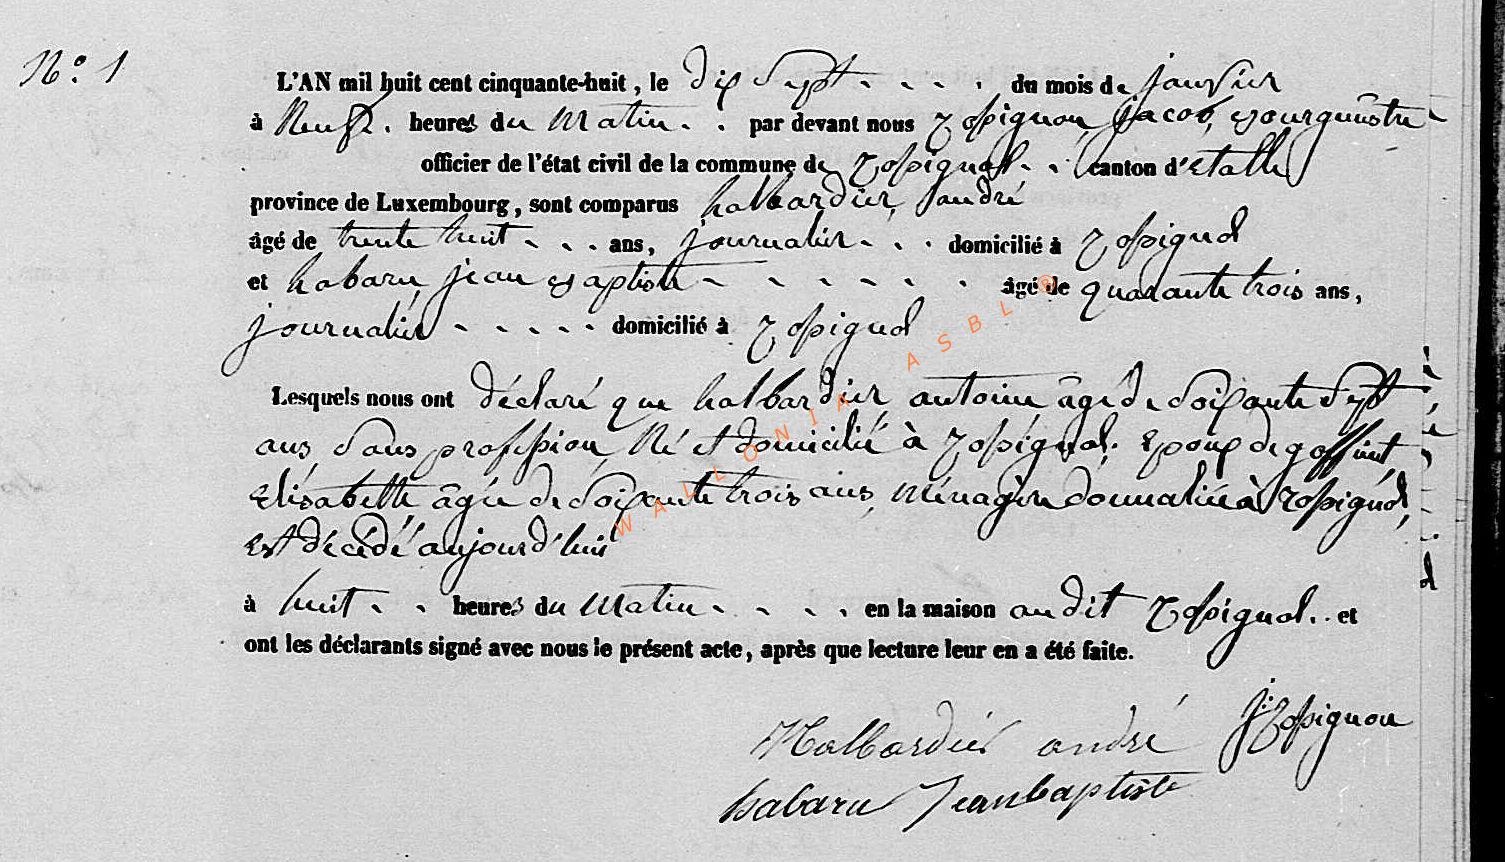 N.o 1
L'AN mil huit cent cinquante-huit, le dix Sept - - - - du mois de janvier
à Neuf. heures du Matin - . par devant nous Rossignon, Jacob, Bourguèstre
officier de l'état civil de la commune de Rossignol - - canton d'Etalle
province de Luxembourg, sont comparus halbardier, andré
âgé de trente huit - - - ans, journalier - - - domicilié à Rossignol
et habaru jean Baptiste - - - - - - - âgé de quarante trois ans,
journalier - - - - - domicilié à Rossignol
Lesquels nous ont déclaré que halbardier antoine âgé de Soixante Sept
ans Sans profession, Né et domicilié à Rossignol. Epoux de goffinet
Elisabette âgée de Soixante trois ans, Ménagère domiciliée à Rossignol,
Est décédé aujourd'hui
à huit - - heures du Matin - - - - en la maison au dit Rossignol.. et
ont les déclarants signé avec nous le présent acte, après que lecture leur en a été faite.
J: Rossignon
Halbardier andré
habaru Jeanbaptiste
WALLONIA ASBL ©